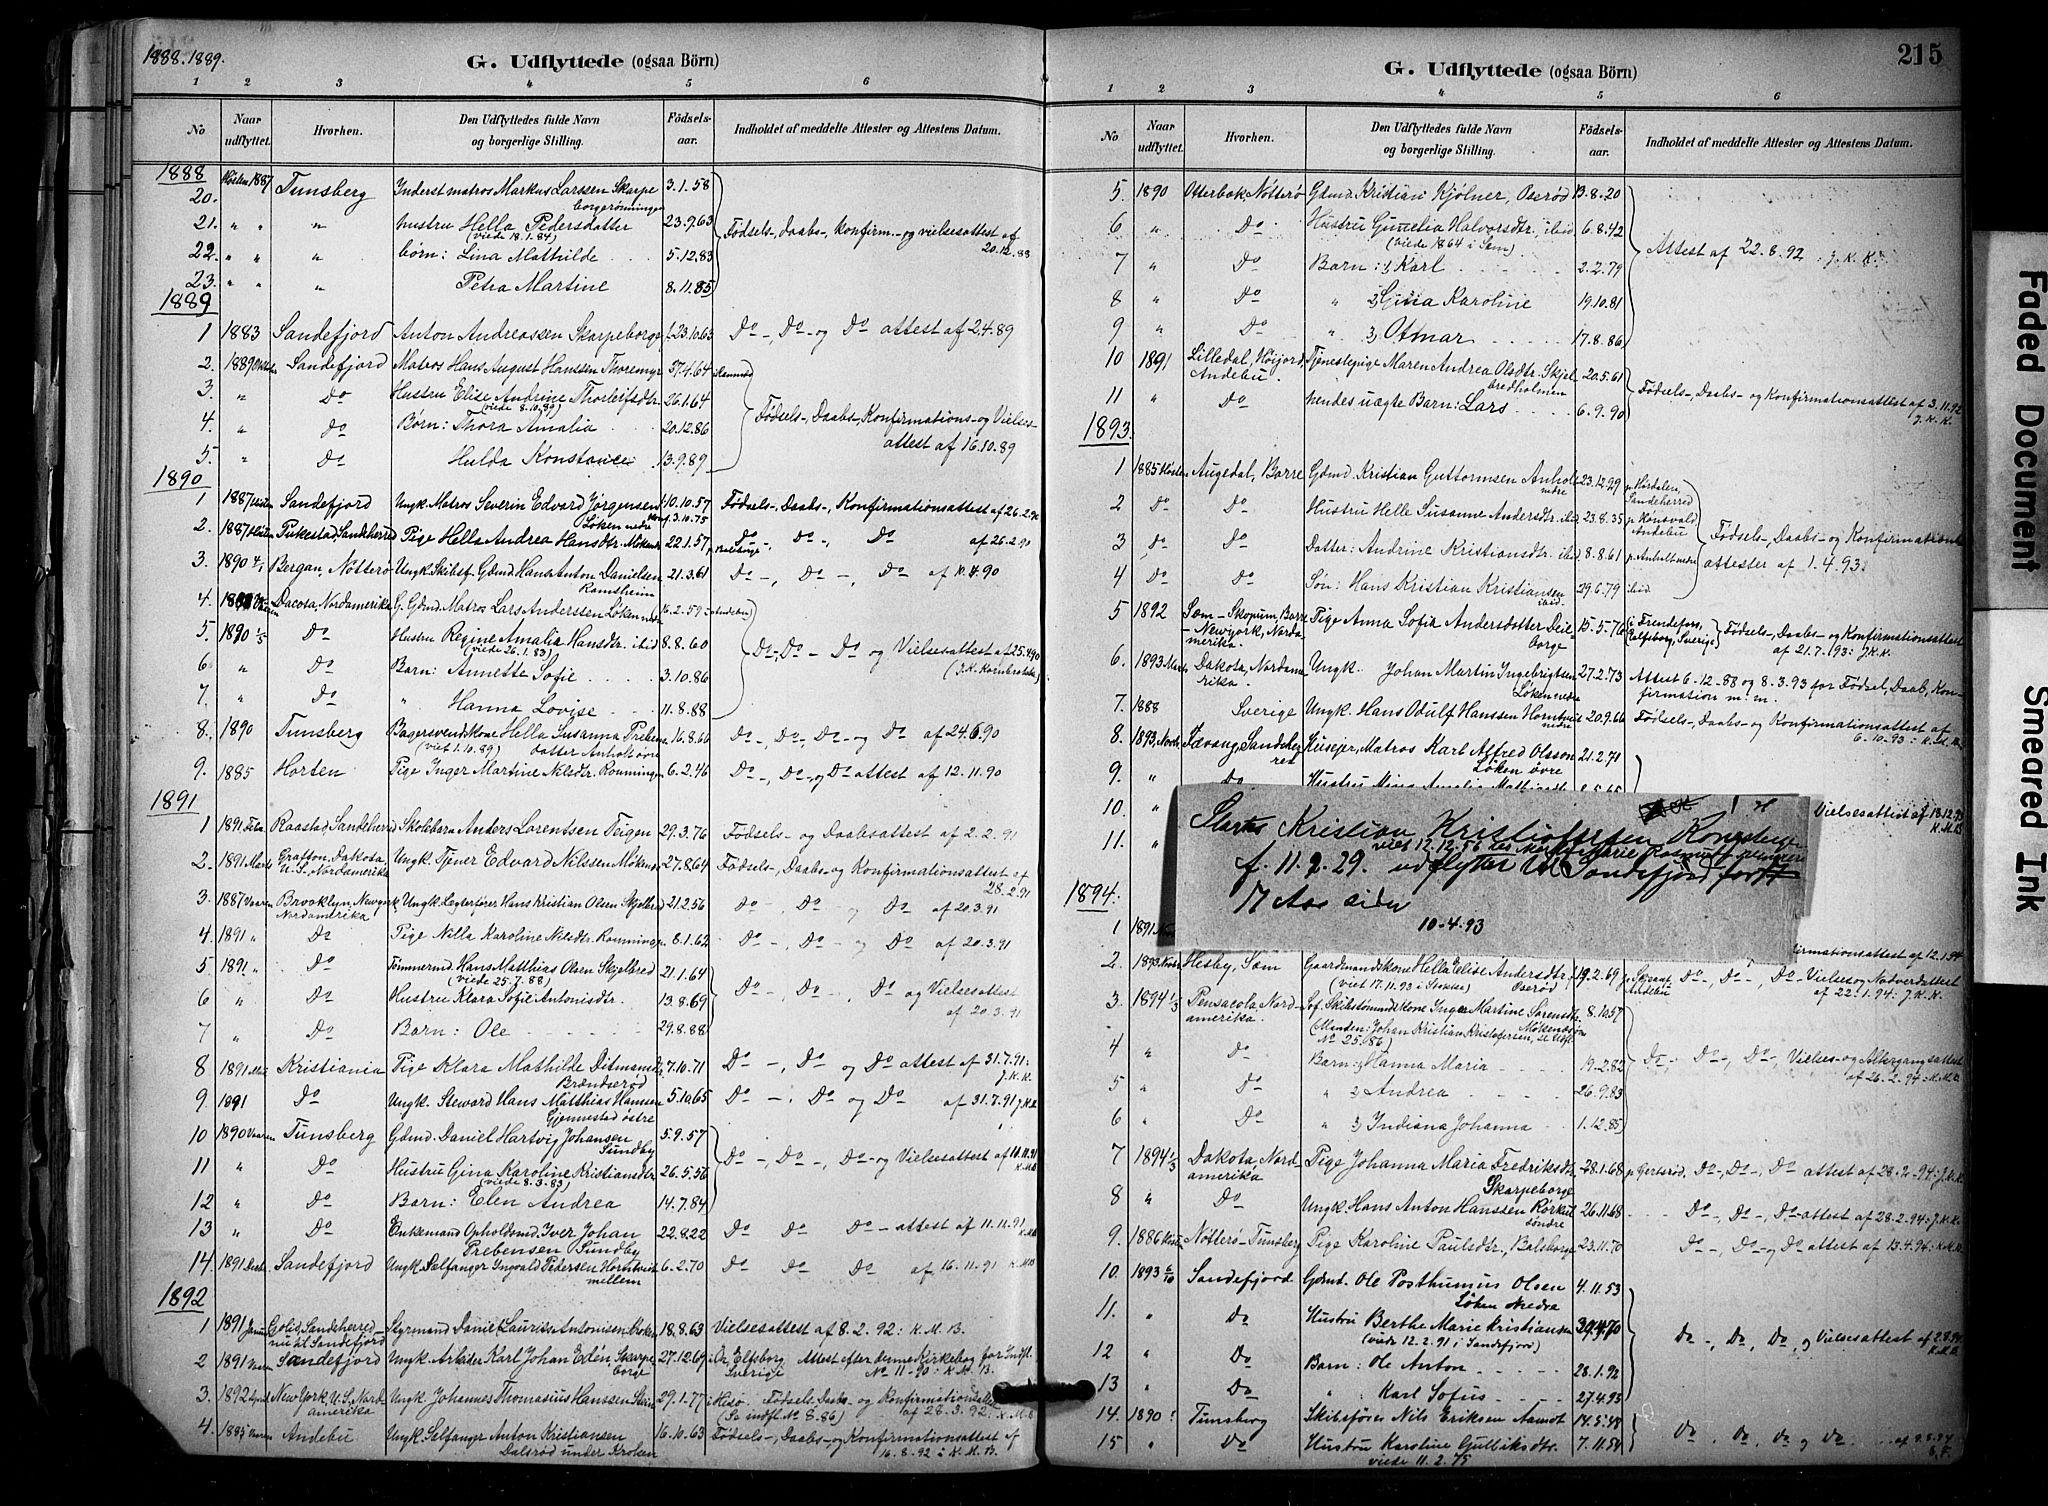 1888. 1889.
G. Udflyttede (ogsaa Börn)
1 2 3 4 5 6
No
Naar udflyttet.
Hvorhen.
Den Udflyttedes fulde Navn og borgerlige Stilling.
Födselsaar.
Indholdet af meddelte Attester og Attestens Datum.
1888
20. Høsten 1887 Tunsberg Inderst matros Markus Larssen Skarpe 3.1.58
borgerønningen
21. " " " Hustru Hella Pedersdatter 23.9.63 Fødsels-, Daabs-, konfirm.- og vielsesattest af
(viede 18.1.84) 20.12.88
22. " " " børn: Lina Mathilde 5.12.83
23. " " " Petra Martine 8.11.85
1889
1 1883 Sandefjord Anton Andreassen Skarpeborge 23.10.63 Do -, Do - og Do attest af 2.4.89
2. 1889 Sandefjord Matros Hans August Hanssen Thoremyr
3. " Do Hustru Elise Andrine Thorleifsdtr. 26.1.64
(viede 8.10.89)
4. " Do Børn: Thora Amalia 20.12.86 Fødsels-, Daabs-, Konfirmations- og Vielses-
attest af 16.10.89
5. " Do Hulda Konstance 13.9.89
1890
1 1887 Sandefjord Ungk. Matros Severin Edvard Jørgensen 10.10.57 Fødsels-, Daabs-, Konfirmationsattest af 26.2.90
Løken nedre
2. 1887 Pukestad, Sandeherred Pige Hella Andrea Hansdtr. 22.1.57 Do -, Do -, Do af 26.2.90
3. 1890 Bergan, Nøtterø Ungk. Skibst. Gdmd. Hans Anton Danielsen 21.3.61 Do -, Do -, Do af 4.90
Ramsheim
4. Dacota, Nordamerika G. Gdmd. Matros Lars Anderssen Løken 16.2.59 i Andebu
5. 1890 1/5 Do Hustru Regine Amalia Hansdtr. ibid 8.8.60
(viede 26.1.83) Do -, Do - Do og Vielsesattest af 25.4.90
6 " Do Barn: Annette Sofie 3.10.86
7. " Do " Hanna Lovise 11.8.88
8. 1890 Tunsberg Bagersvendskone Hella Susanna Preben- 16.8.66 Do -, Do -, Do - og Do af 24.6.90
(viet 1.10.89) datter Anholt øvre
9. 1885 Horten Pige Inger Martine Nilsdtr. Ronningen 6.2.46 Do -, Do -, og Do attest af 12.11.90
1891
1 1891 Febr. Raastad, Sandeherred Skolebarn Anders Lorentsen Teigen 29.3.76 Fødsels- og Daabsattest af 2.2.91
2. 1891 Marts Grafton, Dakota Ungk. Tjener Edvard Nilsen 27.8.64 Fødsels-, Daabs- og Konfirmationsattest af
U.S. Nordamerika 28.2.91
3. 1887 Vaaren Brooklyn, Newyork, Ungk. Hans Kristian Olsen Skjelbred 21.2.56 Do -, Do - og Do - af 20.3.91
Nordamerika
4 1891 " Do Pige Nilla Karoline Nilsdtr. Ronningen 8.1.62 Do -, Do - og Do af 20.3.91
5 1891 " Do Tømmermd. Hans Matthias Olsen Skjelbred 21.1.64
(viede 25.7.88) Do -, Do -, Do og Vielsesattest
6 " Do Hustru Klara Sofie Antonisdtr. 13.8.69 af 20.3.91
7 " Do Barn: Ole 29.8.88
8 1891 Kristiania Pige Klara Mathilde Ditmansdtr. 7.10.71 Do -, Do og Do attest af 31.7.91:
Brændserød J.K.K.
9 1891 Do Ungk. Steward Hans Matthias Hansen 5.10.65 Do -, Do og Do af 31.7.91 J.K.K.
Gjennestad østre
10 1890 Vaaren Tunsberg Gdmd. Daniel Hartvig Johansen 5.9.57
Sundby
11 " Do Hustru Gina Karoline Kristiansdtr 26.5.56 Do -, Do -, Do - og Vielsesattest af 11.91
(viede 8.3.83)
12 " Do Barn: Elen Andrea 14.7.84
13 " Do Enkemand Opholdsmd. Iver Johan 22.8.22 Do Do Do - attest af 11.11.91
Prebensen Sundby
14. 1891 Sandefjord Ungk. Selfanger Ingvald Pedersen 6.2.70 Do Do Do af 16.11.91 K.M.B.
mellem
1892
1 1891 Sandeherred Styrmand Daniel Laurits Antonisen 18.8.63 Vielsesattest af 8.2.92: K.M.B.
nu til Sandefjord
2 1891 Sandefjord Ungk. Arbider Karl Johan Edén Skarpe 27.12.69 Elfsborg Attest efter denne Kirkebog for Indfl.
borge Sverige No 11-90: K.M.B.
3. 1892 New York, U.S. Nord- Ungk Johannes Thomasius Hanssen 29.1.77 Fødsels-, Daabs- og Konfirmationsattest
amerika (Se indfl. No 8.86) af 28.3.92:
4. 1885 Andebu Ungk Selfanger Anton Kristiansen 16.10.63 Fødsels-, Daabs- og Konfirmationsattest af
Dalsrød under Kroken 16.8.92: K.M.B.
G. Udflyttede (ogsaa Börn)
215
1 2 3 4 5 6
No.
Naar udflyttet.
Hvorhen.
Den Udflyttedes fulde Navn og borgerlige Stilling.
Födselsaar.
Indholdet af meddelte Attester og Attestens Datum.
5. 1890 Otterbæk, Nøtterø Gdmd. Kristian Kjølner, Oserød 13.8.20
6 " Do Hustru Gunelia Halvorsdtr., ibid 6.8.42
(viede 1864 i Sem) Attest af 22.8.92: J.K.K.
7 " Do Barn: 1, Karl 2.2.79
8 " Do " 2, Gina Karoline 19.10.81
9 " Do " 3, Ottmar 17.8.86
10 1891 Lilledal, Høijord, Tjenestepige Maren Andrea Olsdtr. Skjel- 20.5.61
Andebu. bredholmen Fødsels-, Daabs- og Konfirmationsattest af 3.11.92
11 " Do hendes uægte Barn: Lars 6.9.90 J.K.K.
1893.
1 1885 Høsten Augedal, Borre Gdmd. Kristian Guttormsen Anholt 23.12.29
nedre Sandeherred
2 Do Do Hustru Helle Susanne Andersdtr. ibid 23.8.35
Andebu
3 Do Do Datter: Andrine Kristiansdtr. ibid 8.8.61 p. Anholt nedre Fødsels-, Daabs- og Konfirmations-
attester af 1.4.93:
4 Do Do Søn: Hans Kristian Kristiansen 29.6.79 ibid
ibid.
5 1892 Sem - Skopum, Borre Pige Anna Sofie Andersdotter 15.5.76 Fødsels-, Daabs- og Konfirmationsattest
- Newyork, Norda- borge Elfsborg, Sverige af 21.7.93: J.K.K.
merika.
6. 1893 Marts Dakota, Nordame- Ungk. Johan Martin Ingebrigtsen 27.2.73 Attest 6.12.88 og 8.3.93 for Fødsel, Daab, Kon-
rika. Løken nedre firmation m.m.
7. 1888 Sverige Ungk. Hans Odulf Hanssen 20.9.66 Fødsels-, Daabs- og Konfirmationsattest af
nedre 6.10.93: K.M.B.
8. 1893, Istvang, Sandeher- Husejer, Matros Karl Alfred Olsson 21.2.71
red Løken øvre
9. " Do Hustru
10. " Vielsesattest af 18.12.93
K.M.B.
11. "
Kristian Kristiofersen Kongsberg
viet 12.12.56
f. 11.2.29. udflyttet til Sandefjord for
17 Aar siden
10.4.93
1894.
1 1891 Konfirmationsattest af 12.1.94
2. 1893 Hesby, Sem Gaardmandskone Hella Elise Andersdtr. 19.2.69 Do -, Do -, Do - Vielses og Nadverdattest
(viet 17.11.93 i Stokke) Oserød Andebu af 22.1.94: J.K.K.
3. 1894 1/3 Pensacola, Nord- Sef. Skibstømmdskone Inger Martine Sørensdtr. 8.10.57
amerika. (Manden: Johan Kristian Kristofersen, se Udfl.
No 25.86)
4 " Do Barn: 1, Hanna Maria 19.2.82 Do -, Do -, Do -, Vielses- og Altergangsattest
af 26.2.94: K.M.B.
5 " Do " 2, Andrea 26.9.83
6 " Do " 3, Indiana Johanna 1.12.85
7 1894 1/3 Dakota, Nord- Pige Johanna Maria Fredriksdtr. 28.1.68 p. Gertsrød, Do -, Do -, Do attest af 28.2.94: J.K.K.
amerika Skarpeborge
8 " Do Ungk. Hans Anton Hanssen Rørkul 26.11.68 Do -, Do -, Do - attest af 28.2.94: J.K.K.
søndre
9. 1886 Nøtterø - Tunsberg Pige Karoline Paulsdtr., Balsborge 23.11.70 Do -, Do - og Do attest af 13.4.94: K.M.B.
10. 1893 6/10 Sandefjord Gdmd. Ole Posthumus Olsen 4.11.53
Løken Nedra
11. " Do Hustru Berthe Marie Kristiansen
(viede 12.2.91 i Sandefjord) Do -, Do, Do, og Vielsesattest af 2.8.94
K.M.B.
12 " Do Barn: Ole Anton 28.1.92
13 " Do " Karl Sofus 27.4.93
14. 1890 Tunsberg Skibsfører Nils Eriksen Aamot 14.5.48
15 " Do Hustru Karoline Gulliksdtr. 7.11.54 Do, Do, Do og Do
viede 11.2.75
Faded Document
Smeared Ink